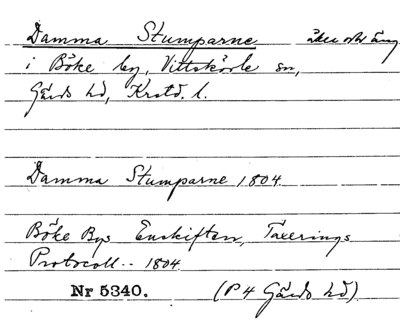 Damma Stumparne åker och äng
i Böke by, Vittskövle sn,
Gärds hd, Krstd. l.
Damma Stumparne 1804.
Böke Bys Enskiften, Taxerings
Protocoll .. 1804
Nr 5340. (P4 Gärds hd)